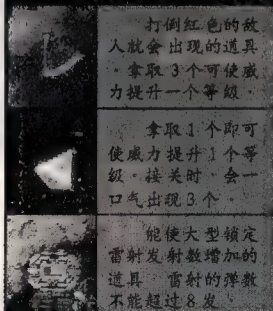 打倒紅色的敵
人就會出現的道具
。拿取3個可使威
力提升一個等級。
拿取1個即可
使威力提升1個等
級。接关時，會一
口气出現3个。
能使大型鎖定
雷射发射數增加的
道具 雷射的弹数
不能超过8发。